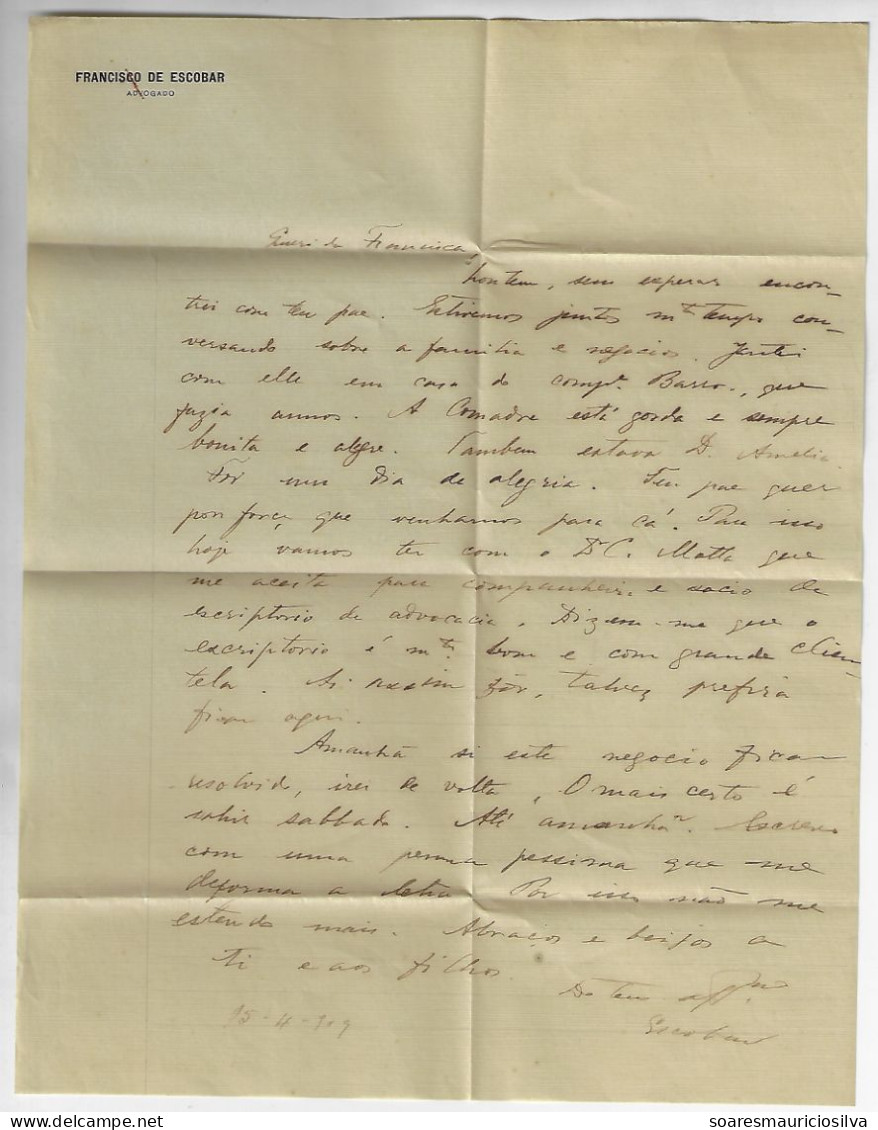 FRANCISCO DE ESCOBAR
ADVOGADO
Querida Francisca,
hontem, sem esperar encon-
trei com teu pae. Estivemos juntos mto tempo con-
versando sobre a familia e negocios. Jantei
com elle em casa do compe. Barro., que
fazia annos. A Comadre está gorda e sempre
bonita e alegre. Tambem estava D. Amelia.
Fôr um dia de alegria. Teu pae quer
por força que venhamos para cá. Para isso
hoje vamos ter com o Dr C. Matta que
me aceita para companheiro e socio de
escriptorio de advocacia. Dizem-me que o
escriptorio é mto bom e com grande clien-
tela. Si assim fôr, talvez prefira
ficar aqui.
Amanhã si este negocio ficar
resolvido, irei de volta. O mais certo é
subir sabbado. Até amanhã. Escrevo
com uma penna pessima que me
deforma a letra. Por isso não me
estendo mais. Abraços e beijos a
ti e aos filhos.
Do teu
Escobar
15-4-909
soaresmauriciosilva